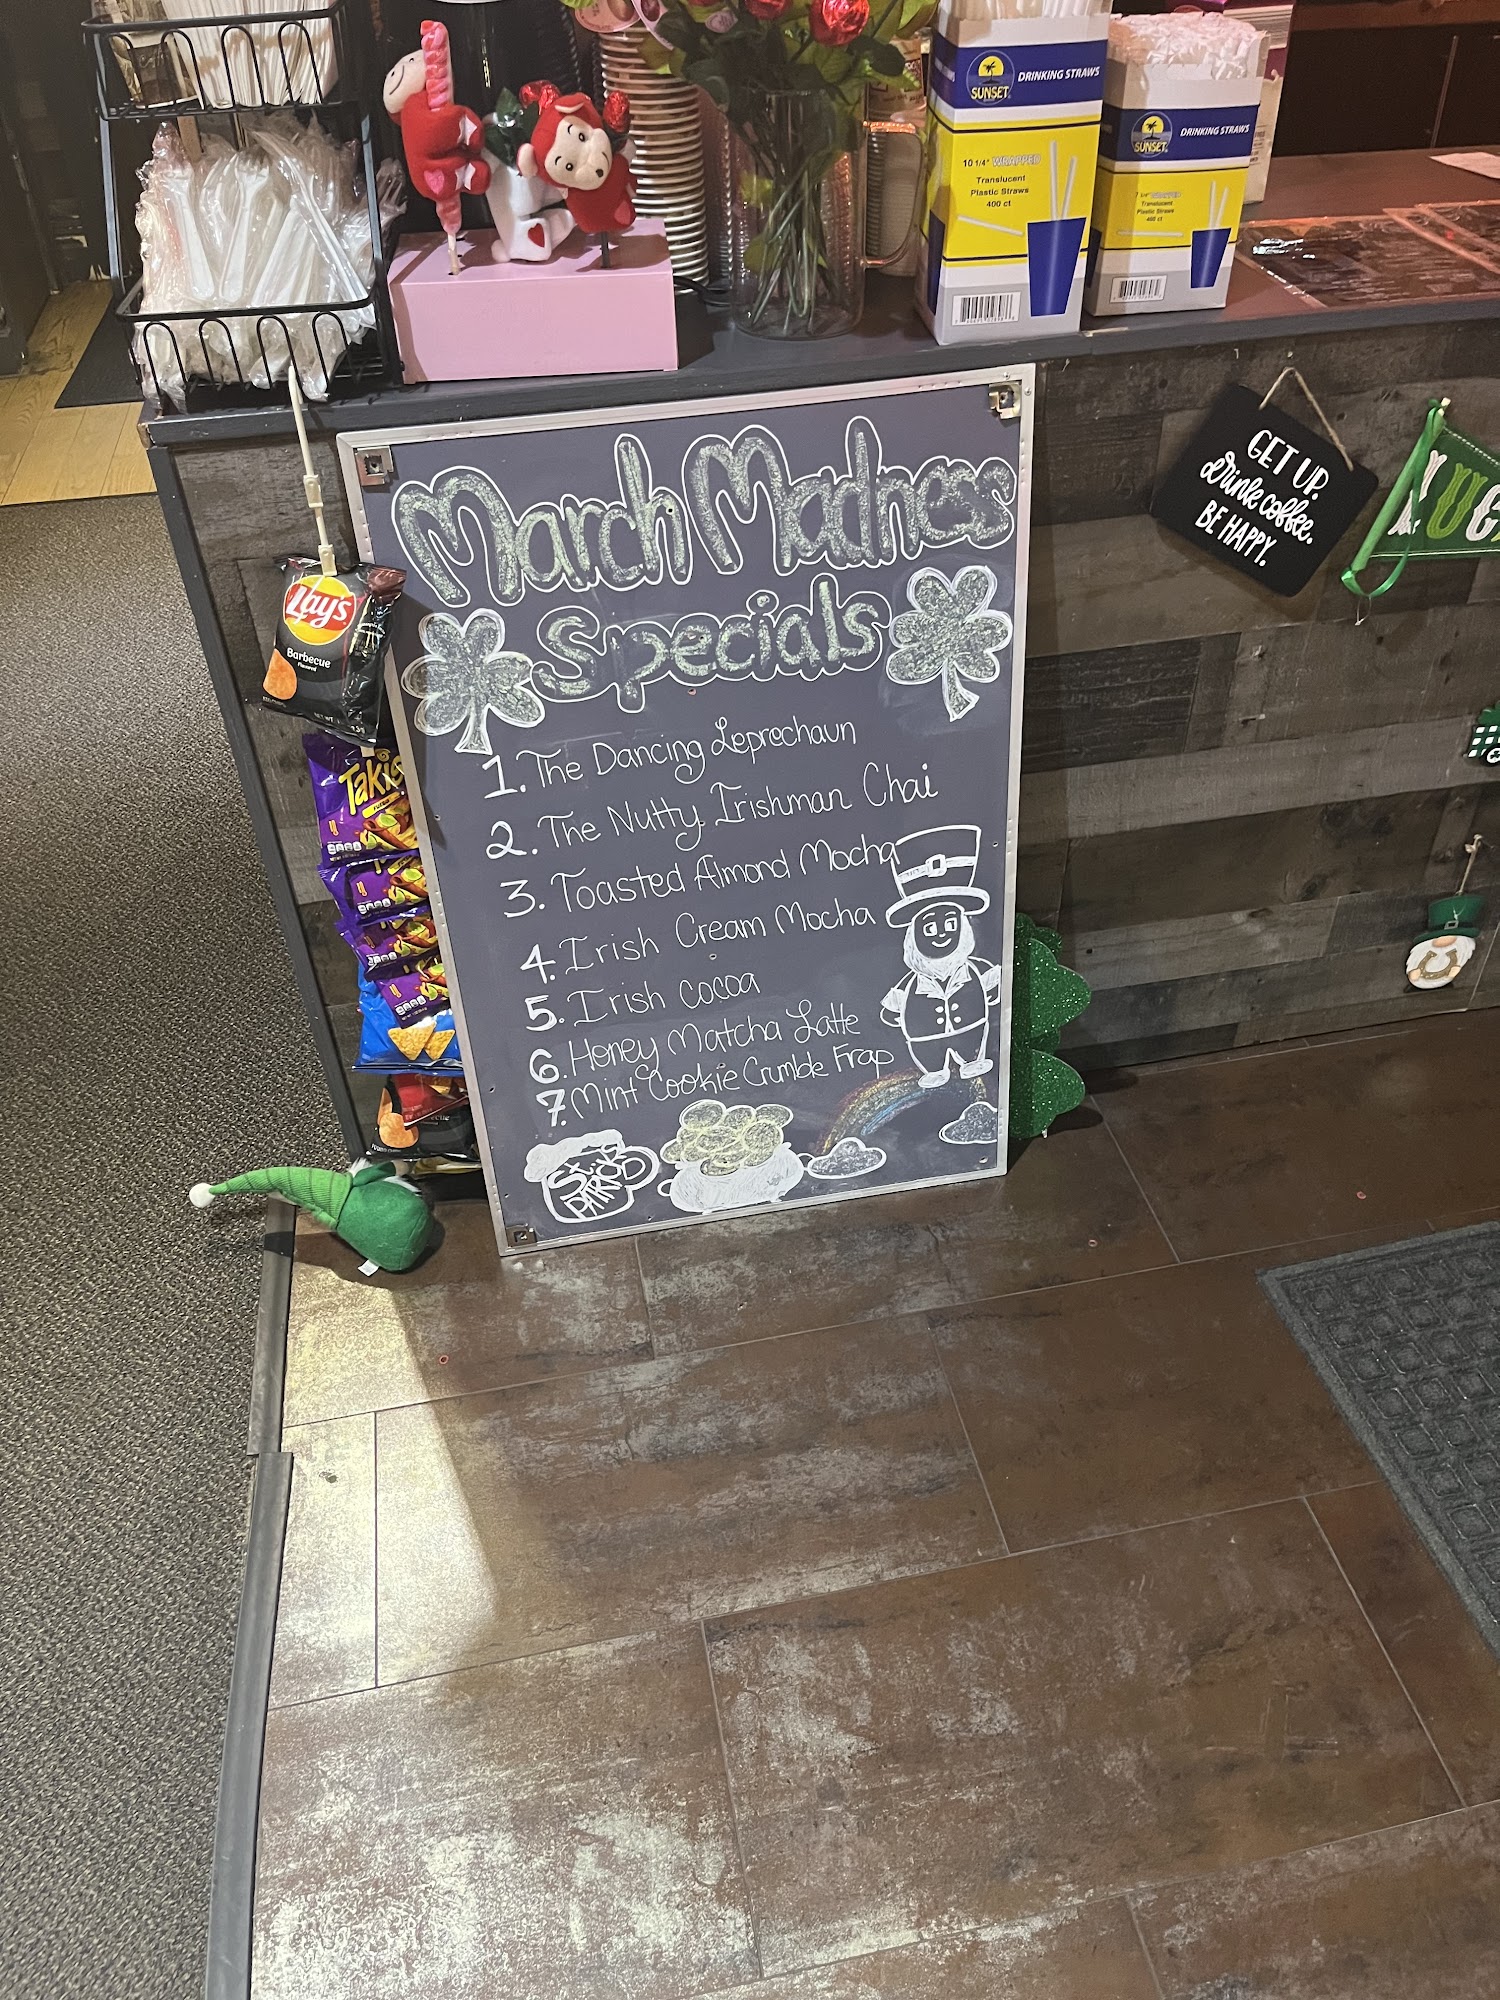 SUNSET
DRINKING STRAWS
10 1/4" WRAPPED
Translucent
Plastic Straws
400 ct
SUNSET
DRINKING STRAWS
WRAPPED
Translucent
Plastic Straws
400 ct
March Madness
Specials
1. The Dancing Leprechaun
2. The Nutty Irishman Chai
3. Toasted Almond Mocha
4. Irish Cream Mocha
5. Irish cocoa
6. Honey Matcha Latte
7. Mint Cookie Crumble Frap
GET UP.
drink coffee.
BE HAPPY.
Lay's
Barbecue
Flavored
Takis